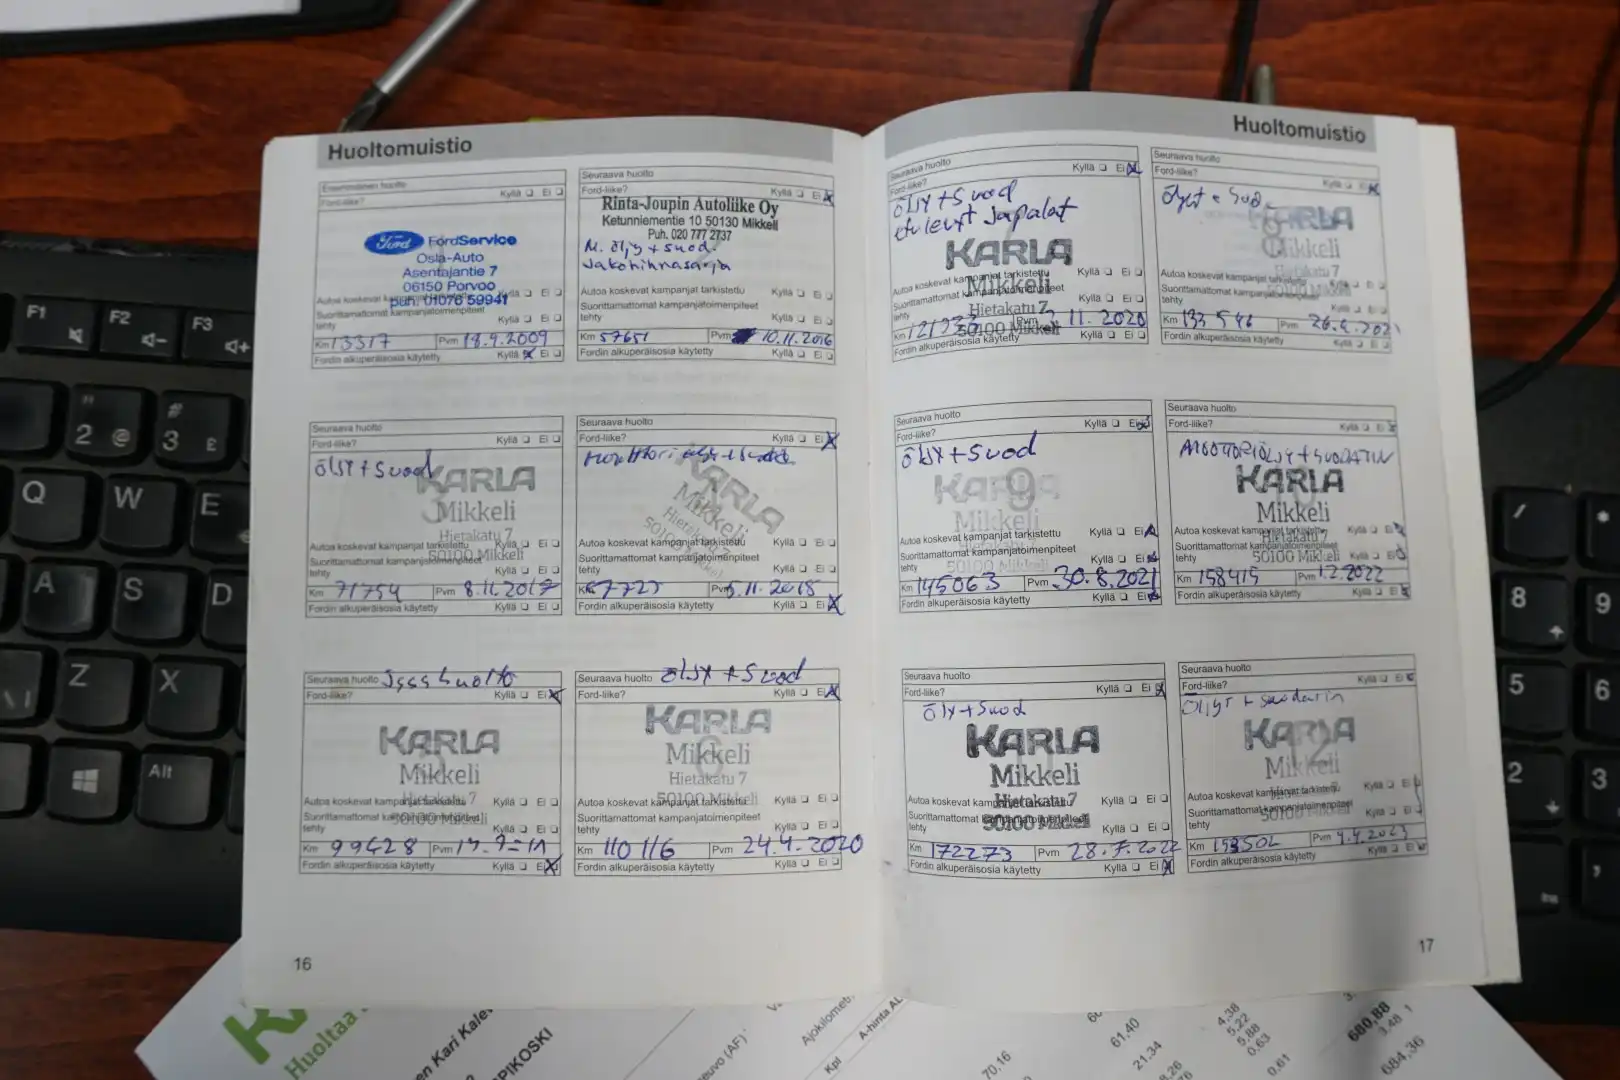 Huoltomuistio
Ensimmäinen huolto
Ford-liike? Kyllä ❑ Ei ❑
Ford FordService
Osla-Auto
Asentajantie 7
06150 Porvoo
puh. 01076 59941
Autoa koskevat kampanjat tarkistettu Kyllä ❑ Ei ❑
Suorittamattomat kampanjatoimenpiteet
tehty Kyllä ❑ Ei ❑
Km 13317 Pvm 18.9.2009
Fordin alkuperäisosia käytetty Kyllä ☒ Ei ❑
Seuraava huolto
Ford-liike? Kyllä ❑ Ei ☒
Rinta-Joupin Autoliike Oy
Ketunniementie 10 50130 Mikkeli
Puh. 020 777 2737
M. öljy + suod.
Jakohihnasarja
Autoa koskevat kampanjat tarkistettu Kyllä ❑ Ei ❑
Suorittamattomat kampanjatoimenpiteet
tehty Kyllä ❑ Ei ❑
Km 57651 Pvm 10.11.2016
Fordin alkuperäisosia käytetty Kyllä ❑ Ei ❑
Seuraava huolto
Ford-liike? Kyllä ❑ Ei ❑
öljy + suod
3
KARLA
Mikkeli
Hietakatu 7
50100 Mikkeli
Autoa koskevat kampanjat tarkistettu Kyllä ❑ Ei ❑
Suorittamattomat kampanjatoimenpiteet
tehty Kyllä ❑ Ei ❑
Km 71754 Pvm 8.11.2017
Fordin alkuperäisosia käytetty Kyllä ❑ Ei ❑
Seuraava huolto
Ford-liike? Kyllä ❑ Ei ☒
KARLA
Mikkeli
Hietakatu 7
50100 Mikkeli
Autoa koskevat kampanjat tarkistettu Kyllä ❑ Ei ❑
Suorittamattomat kampanjatoimenpiteet
tehty Kyllä ❑ Ei ❑
Km Pvm 5.11.2018
Fordin alkuperäisosia käytetty Kyllä ❑ Ei ☒
Seuraava huolto
Ford-liike? Kyllä ❑ Ei ☒
5
KARLA
Mikkeli
Hietakatu 7
50100 Mikkeli
Autoa koskevat kampanjat tarkistettu Kyllä ❑ Ei ❑
Suorittamattomat kampanjatoimenpiteet
tehty Kyllä ❑ Ei ❑
Km 99428 Pvm
Fordin alkuperäisosia käytetty Kyllä ❑ Ei ☒
Seuraava huolto öljy + suod
Ford-liike? Kyllä ❑ Ei ☒
6
KARLA
Mikkeli
Hietakatu 7
50100 Mikkeli
Autoa koskevat kampanjat tarkistettu Kyllä ❑ Ei ❑
Suorittamattomat kampanjatoimenpiteet
tehty Kyllä ❑ Ei ❑
Km 110 116 Pvm 24.4.2020
Fordin alkuperäisosia käytetty Kyllä ❑ Ei ❑
16
Huoltomuistio
Seuraava huolto
Ford-liike? Kyllä ❑ Ei ☒
öljy + suod
etulevyt Japalat
KARLA
Mikkeli
Hietakatu 7
50100 Mikkeli
Autoa koskevat kampanjat tarkistettu Kyllä ❑ Ei ❑
Suorittamattomat kampanjatoimenpiteet
tehty Kyllä ❑ Ei ❑
Km Pvm 11.2020
Fordin alkuperäisosia käytetty Kyllä ❑ Ei ❑
Seuraava huolto
Ford-liike? Kyllä ❑ Ei ☒
8
KARLA
Mikkeli
Hietakatu 7
50100 Mikkeli
Autoa koskevat kampanjat tarkistettu Kyllä ❑ Ei ❑
Suorittamattomat kampanjatoimenpiteet
tehty Kyllä ❑ Ei ❑
Km 133 546 Pvm 26.2.2021
Fordin alkuperäisosia käytetty Kyllä ❑ Ei ❑
Seuraava huolto
Ford-liike? Kyllä ❑ Ei ☒
öljy + suod
9
KARLA
Mikkeli
Hietakatu 7
50100 Mikkeli
Autoa koskevat kampanjat tarkistettu Kyllä ❑ Ei ☒
Suorittamattomat kampanjatoimenpiteet
tehty Kyllä ❑ Ei ☒
Km 145063 Pvm 30.8.2021
Fordin alkuperäisosia käytetty Kyllä ❑ Ei ☒
Seuraava huolto
Ford-liike? Kyllä ❑ Ei ☒
MOOTTORIÖLJY + SUODATIN
KARLA
Mikkeli
Hietakatu 7
50100 Mikkeli
Autoa koskevat kampanjat tarkistettu Kyllä ❑ Ei ☒
Suorittamattomat kampanjatoimenpiteet
tehty Kyllä ❑ Ei ☒
Km 158415 Pvm 1.2.2022
Fordin alkuperäisosia käytetty Kyllä ❑ Ei ☒
Seuraava huolto
Ford-liike? Kyllä ❑ Ei ☒
öljy + suod
KARLA
Mikkeli
Hietakatu 7
50100 Mikkeli
Autoa koskevat kampanjat tarkistettu Kyllä ❑ Ei ❑
Suorittamattomat kampanjatoimenpiteet
tehty Kyllä ❑ Ei ❑
Km 172273 Pvm 28.7.2022
Fordin alkuperäisosia käytetty Kyllä ❑ Ei ☒
Seuraava huolto
Ford-liike? Kyllä ❑ Ei ☒
Öljyt + suodatin
12
KARLA
Mikkeli
50100 Mikkeli
Autoa koskevat kampanjat tarkistettu Kyllä ❑ Ei
Suorittamattomat kampanjatoimenpiteet
tehty Kyllä ❑ Ei
Km Pvm 4.4.2023
Fordin alkuperäisosia käytetty Kyllä ❑ Ei
17
F1
F2
F3
" 2 @
# 3 £
Q
W
E
A
S
D
Z
X
Alt
/
*
8
9
5
6
2
3
,
Ins
Huoltaa
en Kari Kalev
PIKOSKI
euvo (AF)
Ajokilometri
Kpl
A-hinta AL
70,16
61,40
21,34
4,38
5,22
5,88
0,63
0,61
680,88
3,48
684,36